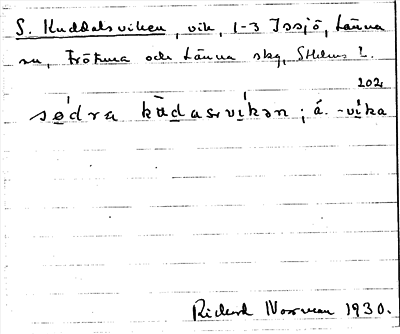 S. Kuddalsviken, vik, 1-3 Issjö, Länna
sn, Frötuna och Länna skg, SthlmS l.
202
sødra kudasvikən ; á. -vika
Richard Norrman 1930.